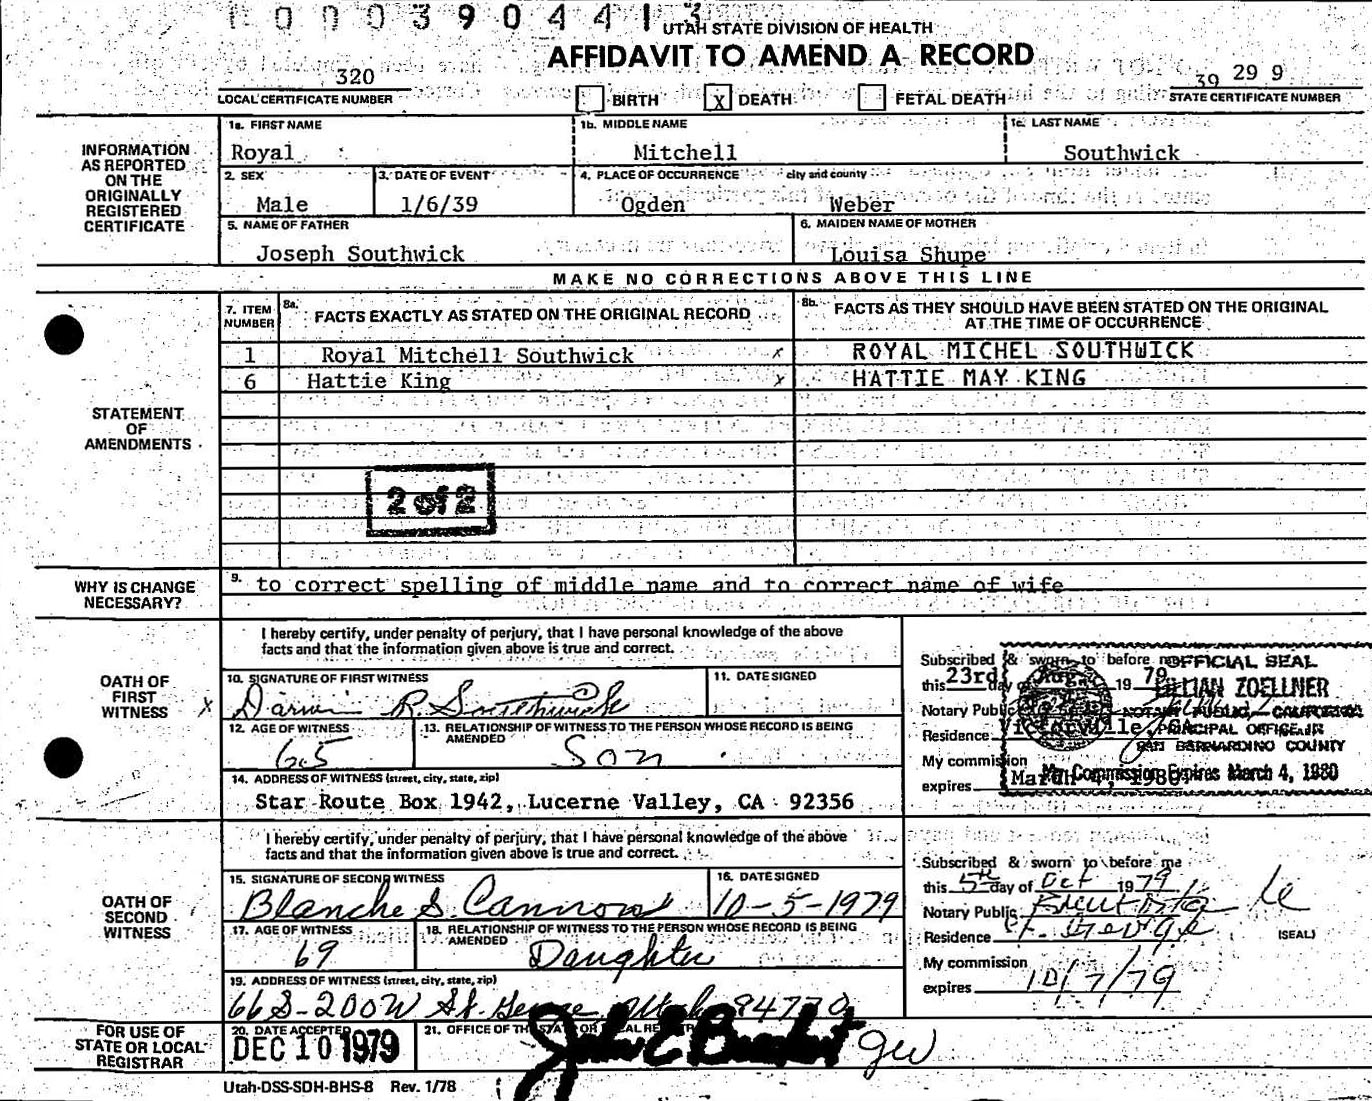 0 0 0 3 9 0 4 4 1 3
UTAH STATE DIVISION OF HEALTH
AFFIDAVIT TO AMEND A RECORD
320
LOCAL CERTIFICATE NUMBER
BIRTH X DEATH FETAL DEATH
39 29 9
STATE CERTIFICATE NUMBER
INFORMATION AS REPORTED ON THE ORIGINALLY REGISTERED CERTIFICATE
1a. FIRST NAME 1b. MIDDLE NAME 1c. LAST NAME
Royal Mitchell Southwick
2. SEX 3. DATE OF EVENT 4. PLACE OF OCCURRENCE city and county
Male 1/6/39 Ogden Weber
5. NAME OF FATHER 6. MAIDEN NAME OF MOTHER
Joseph Southwick Louisa Shupe
MAKE NO CORRECTIONS ABOVE THIS LINE
STATEMENT OF AMENDMENTS
7. ITEM NUMBER 8a. FACTS EXACTLY AS STATED ON THE ORIGINAL RECORD 8b. FACTS AS THEY SHOULD HAVE BEEN STATED ON THE ORIGINAL AT THE TIME OF OCCURRENCE
1 Royal Mitchell Southwick x ROYAL MICHEL SOUTHWICK
6 Hattie King x HATTIE MAY KING
2 of 2
WHY IS CHANGE NECESSARY?
9. to correct spelling of middle name and to correct name of wife
OATH OF FIRST WITNESS X
I hereby certify, under penalty of perjury, that I have personal knowledge of the above
facts and that the information given above is true and correct.
10. SIGNATURE OF FIRST WITNESS 11. DATE SIGNED
Darwin R. Southwick
12. AGE OF WITNESS 13. RELATIONSHIP OF WITNESS TO THE PERSON WHOSE RECORD IS BEING AMENDED
65 Son
14. ADDRESS OF WITNESS (street, city, state, zip)
Star Route Box 1942, Lucerne Valley, CA 92356
Subscribed & sworn to before me
this 23rd day of Aug. 19 79
Notary Public
Residence Victorville, CA
My commission
expires March 4, 1980
OFFICIAL SEAL
LILLIAN ZOELLNER
NOTARY PUBLIC - CALIFORNIA
PRINCIPAL OFFICE IN
SAN BERNARDINO COUNTY
My Commission Expires March 4, 1980
OATH OF SECOND WITNESS
I hereby certify, under penalty of perjury, that I have personal knowledge of the above
facts and that the information given above is true and correct.
15. SIGNATURE OF SECOND WITNESS 16. DATE SIGNED
Blanche S. Cannon 10-5-1979
17. AGE OF WITNESS 18. RELATIONSHIP OF WITNESS TO THE PERSON WHOSE RECORD IS BEING AMENDED
69 Daughter
19. ADDRESS OF WITNESS (street, city, state, zip)
66 S-200W St. George Utah 84770
Subscribed & sworn to before me
this 5th day of Oct 1979
Notary Public
Residence St. George
(SEAL)
My commission
expires 10/7/79
FOR USE OF STATE OR LOCAL REGISTRAR
20. DATE ACCEPTED 21. OFFICE OF THE STATE OR LOCAL REGISTRAR
DEC 10 1979
Utah-DSS-SDH-BHS-8 Rev. 1/78